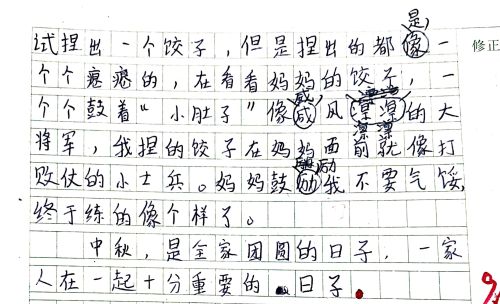 是
试捏出一个饺子，但是捏出的都像一 修正
个个瘪瘪的，在看看妈妈的饺子，一
个个鼓着“小肚子”像威风凛凛的大
凛凛
将军，我捏的饺子在妈妈面前就像打
励
败仗的小士兵。妈妈鼓励我不要气馁，
终于练的像个样了。
中秋，是全家团圆的日子，一家
人在一起十分重要的日子。